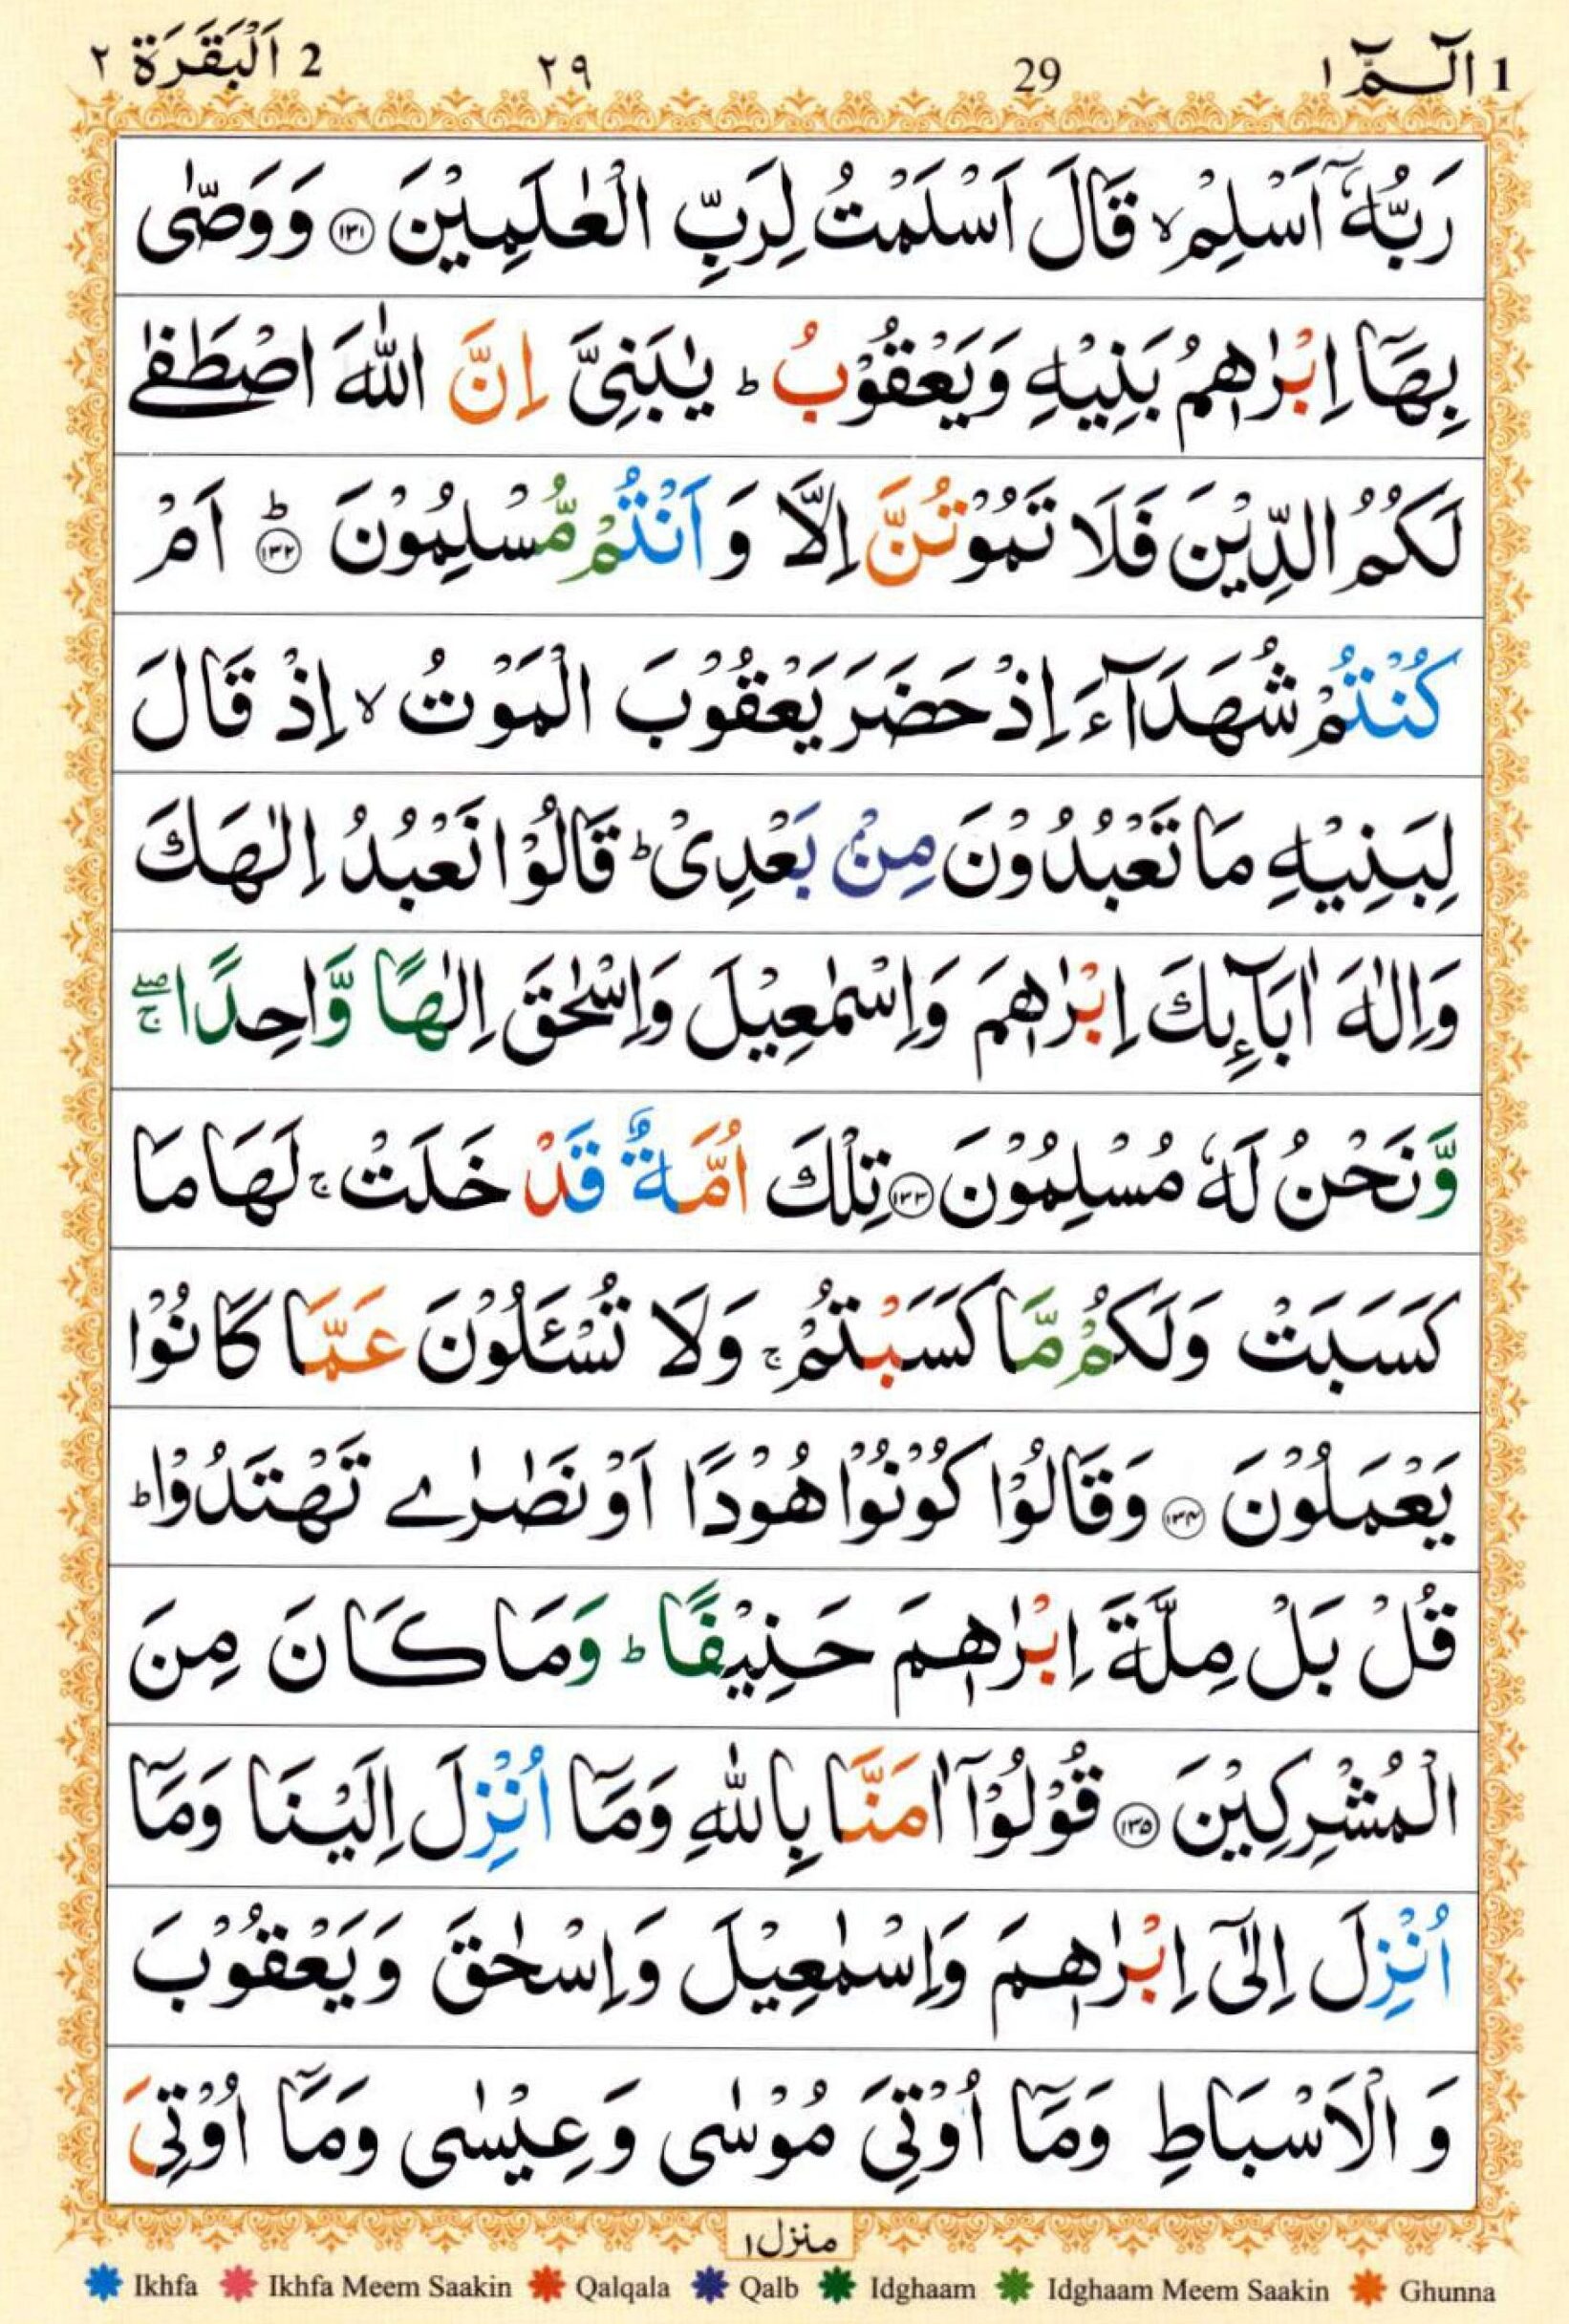 1 الٓـمّٓ ١ 29 ٢٩ 2 اَلْبَقَرَة ٢
رَبُّهٗۤ اَسْلِمْ ۙ قَالَ اَسْلَمْتُ لِرَبِّ الْعٰلَمِيْنَ ۝١٣١ وَوَصّٰى
بِهَاۤ اِبْرٰهٖمُ بَنِيْهِ وَيَعْقُوْبُ ؕ يٰبَنِىَّ اِنَّ اللّٰهَ اصْطَفٰى
لَكُمُ الدِّيْنَ فَلَا تَمُوْتُنَّ اِلَّا وَ اَنْتُمْ مُّسْلِمُوْنَ ؕ ۝١٣٢ اَمْ
كُنْتُمْ شُهَدَآءَ اِذْ حَضَرَ يَعْقُوْبَ الْمَوْتُ ۙ اِذْ قَالَ
لِبَنِيْهِ مَا تَعْبُدُوْنَ مِنْۢ بَعْدِىْ ؕ قَالُوْا نَعْبُدُ اِلٰهَكَ
وَاِلٰهَ اٰبَآئِكَ اِبْرٰهٖمَ وَاِسْمٰعِيْلَ وَاِسْحٰقَ اِلٰهًا وَّاحِدًا ۖۚ
وَّنَحْنُ لَهٗ مُسْلِمُوْنَ ۝١٣٣ تِلْكَ اُمَّةٌ قَدْ خَلَتْ ۚ لَهَا مَا
كَسَبَتْ وَلَكُمْ مَّا كَسَبْتُمْ ۚ وَلَا تُسْـَٔلُوْنَ عَمَّا كَانُوْا
يَعْمَلُوْنَ ۝١٣٤ وَقَالُوْا كُوْنُوْا هُوْدًا اَوْ نَصٰرٰے تَهْتَدُوْا ؕ
قُلْ بَلْ مِلَّةَ اِبْرٰهٖمَ حَنِيْفًا ؕ وَمَا كَانَ مِنَ
الْمُشْرِكِيْنَ ۝١٣٥ قُوْلُوْۤا اٰمَنَّا بِاللّٰهِ وَمَاۤ اُنْزِلَ اِلَيْنَا وَمَاۤ
اُنْزِلَ اِلٰٓى اِبْرٰهٖمَ وَاِسْمٰعِيْلَ وَاِسْحٰقَ وَيَعْقُوْبَ
وَ الْاَسْبَاطِ وَمَاۤ اُوْتِىَ مُوْسٰى وَعِيْسٰى وَمَاۤ اُوْتِىَ
منزل ١
Ikhfa Ikhfa Meem Saakin Qalqala Qalb Idghaam Idghaam Meem Saakin Ghunna